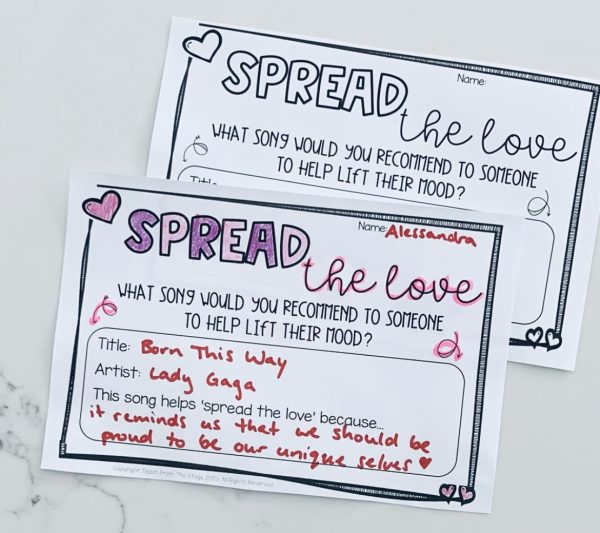 Name:
SPREAD
the love
WHAT SONG WOULD YOU RECOMMEND TO SOMEONE
TO HELP LIFT THEIR MOOD?
Title:
Name: Alessandra
SPREAD
the love
WHAT SONG WOULD YOU RECOMMEND TO SOMEONE
TO HELP LIFT THEIR MOOD?
Title: Born This Way
Artist: Lady Gaga
This song helps 'spread the love' because...
it reminds us that we should be
proud to be our unique selves ♥
Copyright Teach From The Stage 2023. All Rights Reserved.